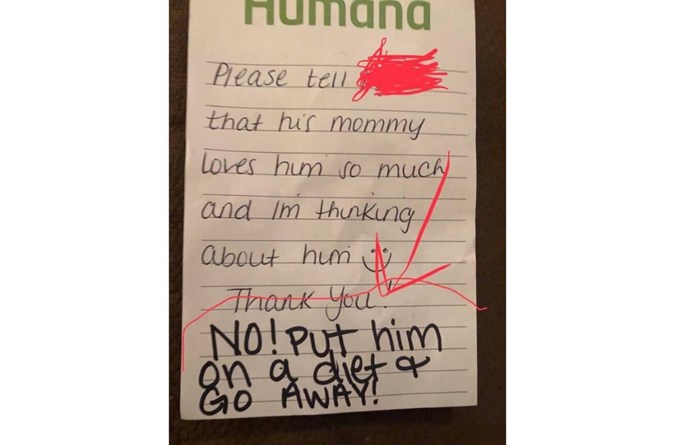 Humana
Please tell
that his mommy
loves him so much
and Im thinking
about him
Thank You!
NO! PUT him
on a diet &
GO AWAY!